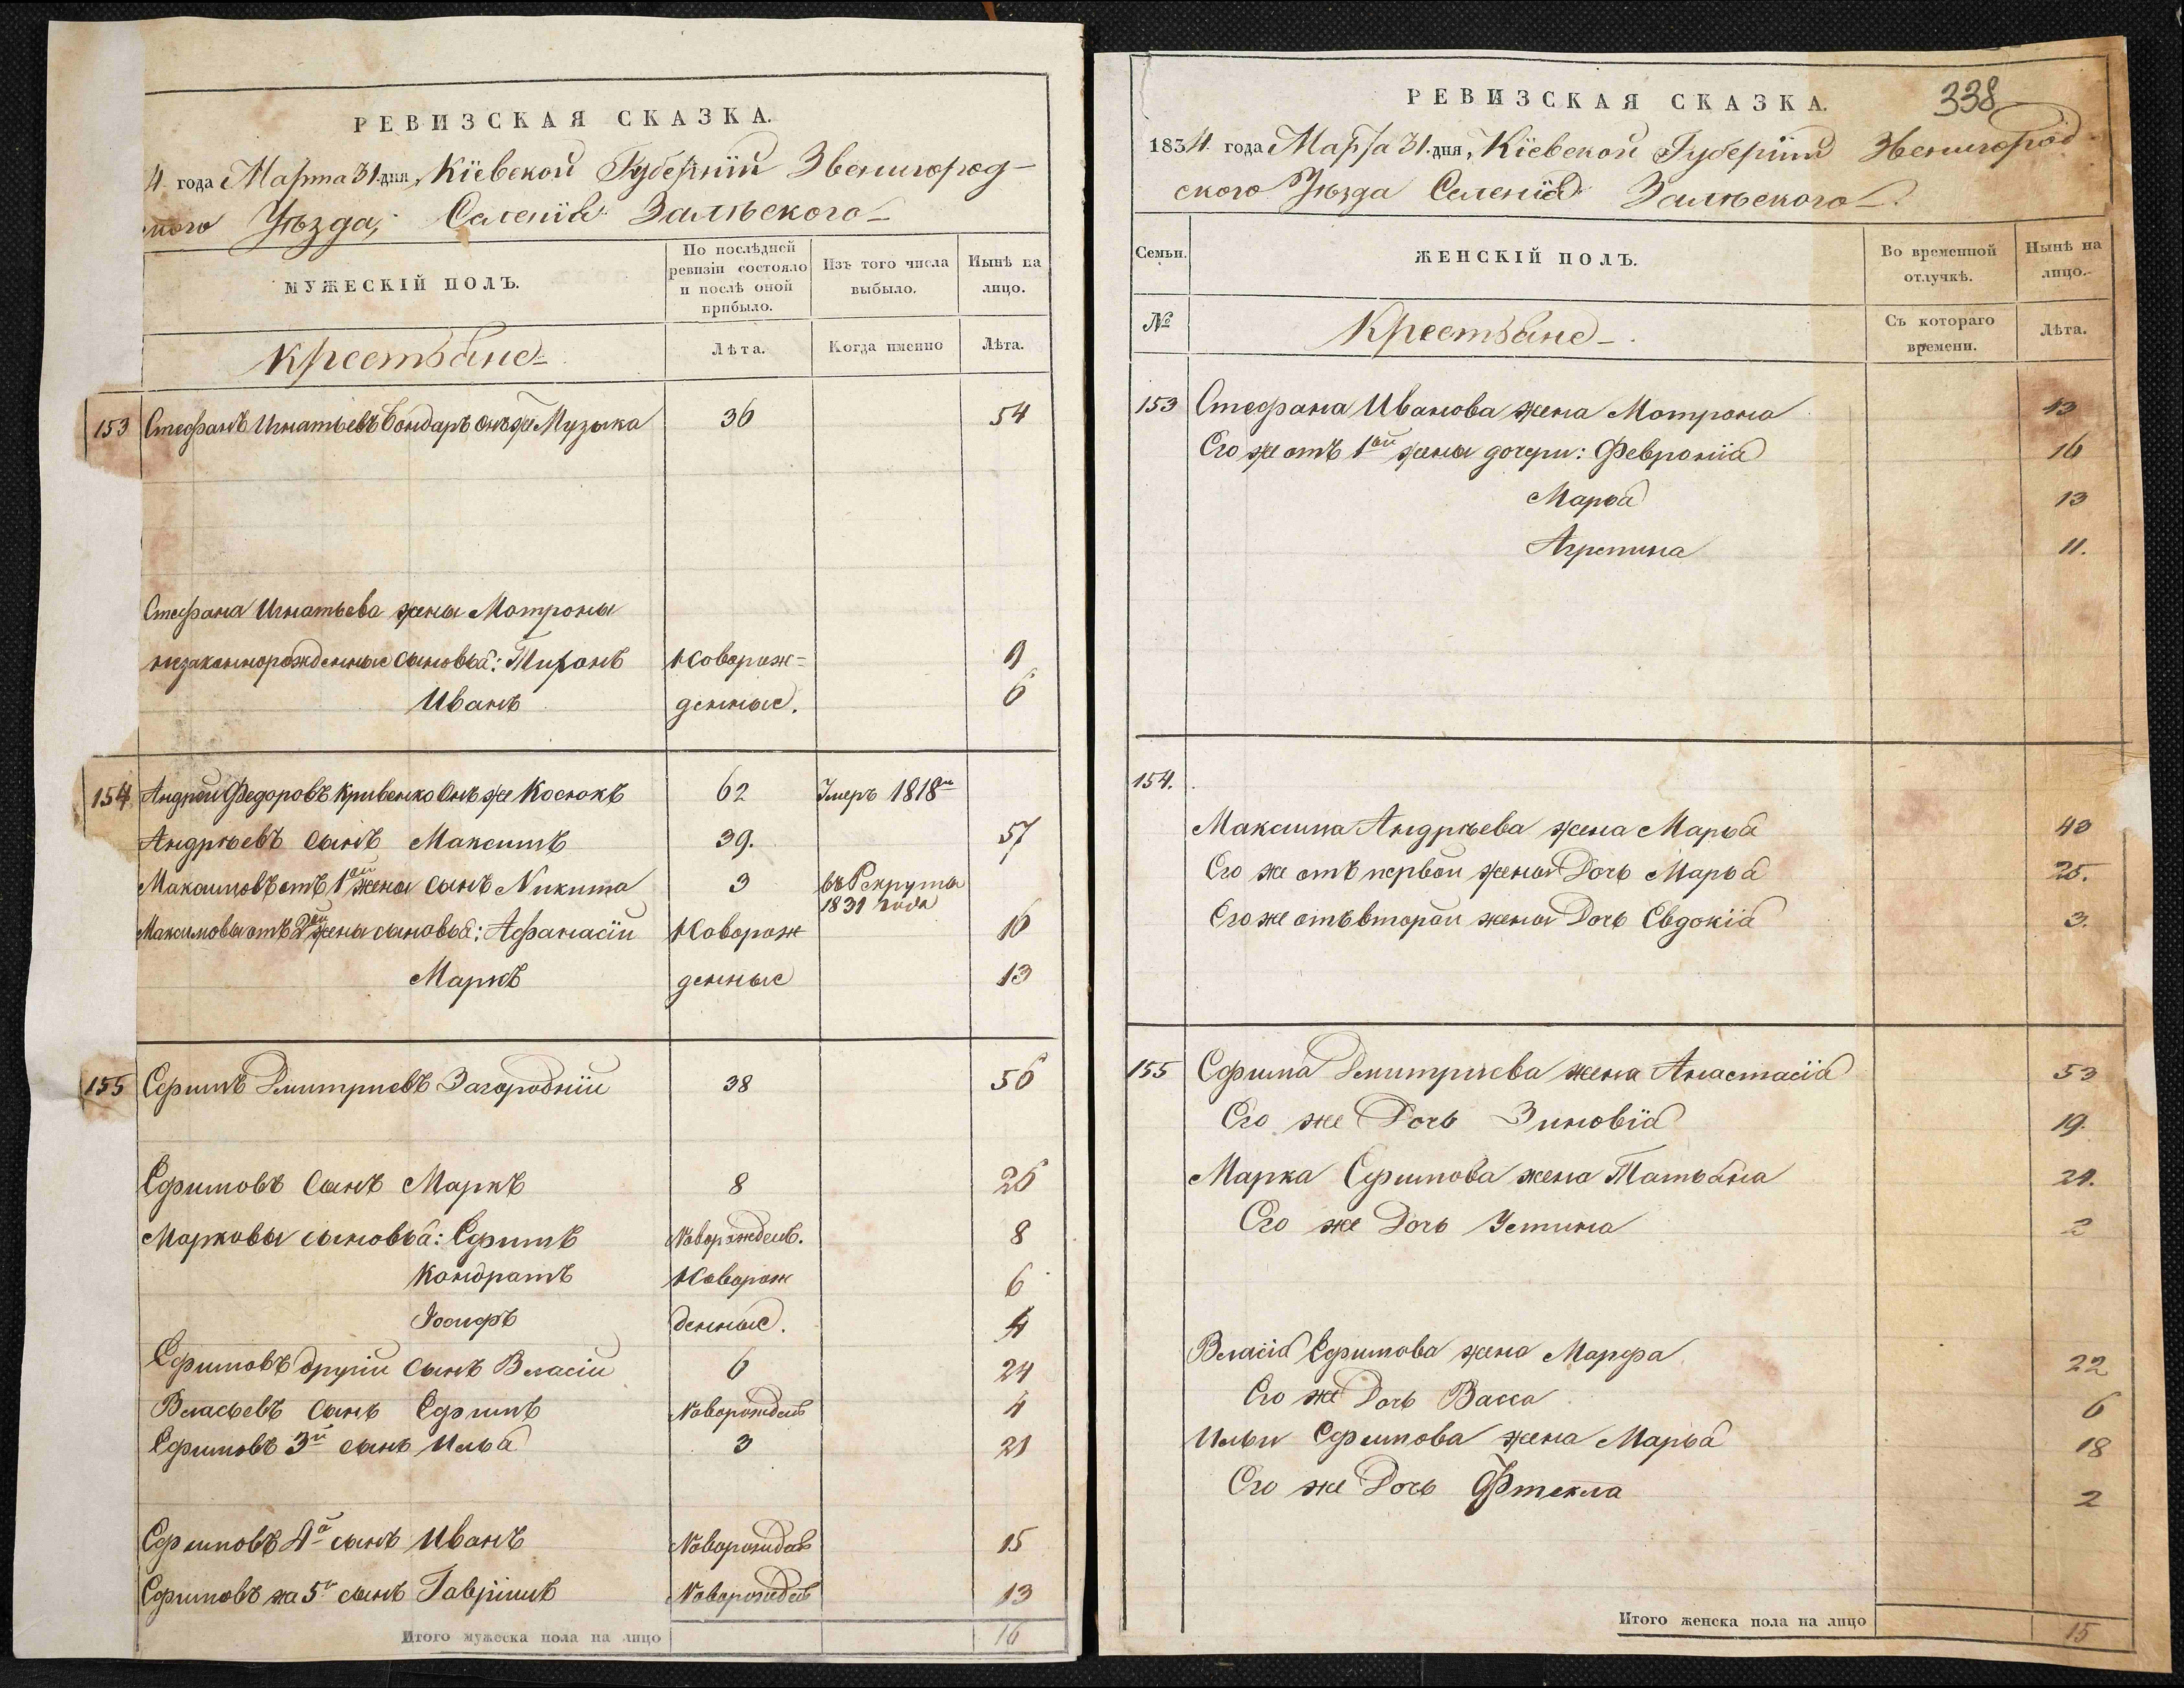 РЕВИЗСКАЯ СКАЗКА.
4 года Марта 31. дня, Кіевской Губерніи Звенигород-
ского Уѣзда, Селенія Залѣскаго
МУЖЕСКІЙ ПОЛЪ.
По послѣдней ревизіи состояло и послѣ оной прибыло.
Изъ того числа выбыло.
Нынѣ на лицо.
Крестьяне
Лѣта.
Когда именно
Лѣта.
153 Стефанъ Игнатьевъ Бондаръ онъ же Музыка 36 54
Стефана Игнатьева жены Матроны
незаконнорожденные сыновья: Тихонъ Новорож- 9
Иванъ денные. 6
154 Андрей Федоровъ Кривенко Онъ же Косюкъ 62 Умеръ 1818го
Андрѣевъ сынъ Максимъ 39. 57
Максимовъ отъ 1ой жены сынъ Никита 3 въ Рекруты
1831 года
Максимовы отъ 2ой жены сыновья: Афанасій Новорож 16
Маркъ денные 13
155 Ефимъ Дмитріевъ Загородній 38 56
Ефимовъ сынъ Маркъ 8 26
Марковы сыновья: Ефимъ Новорожден. 8
Кондратъ Новорож 6
Іосифъ денные. 4
Ефимовъ другій сынъ Власій 6 24
Власьевъ сынъ Ефимъ Новорожден 4
Ефимовъ 3й сынъ Илья 3 21
Ефимовъ 4й сынъ Иванъ Новорожден 15
Ефимовъ же 5й сынъ Гавріилъ Новорожден 13
Итого мужеска пола на лицо 16
338
РЕВИЗСКАЯ СКАЗКА.
1834 года Марта 31. дня, Кіевской Губерніи Звенигород-
ского Уѣзда Селенія Залѣского
Семьи.
ЖЕНСКІЙ ПОЛЪ.
Во временной отлучкѣ.
Нынѣ на лицо.
№
Крестьяне
Съ котораго времени.
Лѣта.
153 Стефана Иванова жена Матрона 43
Его же отъ 1ой жены дочери: Февронія 16
Марья 13
Агрепина 11.
154.
Максима Андрѣева жена Марья 40
Его же отъ первой жены Дочь Марья 25.
Его же отъ второй жены Дочь Евдокія 3.
155 Ефима Дмитріева жена Анастасія 53
Его же Дочь Зиновія 19.
Марка Ефимова жена Татьяна 24.
Его же Дочь Устина 2
Власія Ефимова жена Марфа 22
Его же Дочь Васса 6
Ильи Ефимова жена Марья 18
Его же Дочь Фтекла 2
Итого женска пола на лицо 15